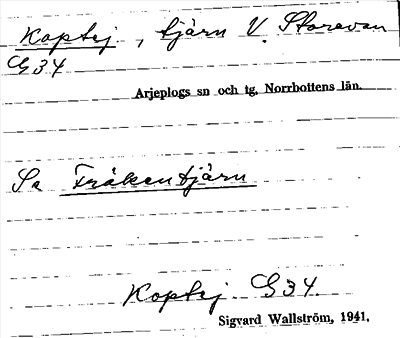 Koptej, tjärn V. Storavan
G34
Arjeplogs sn och tg, Norrbottens län.
Se Fräkentjärn
Koptej G34.
Sigvard Wallström, 1941.